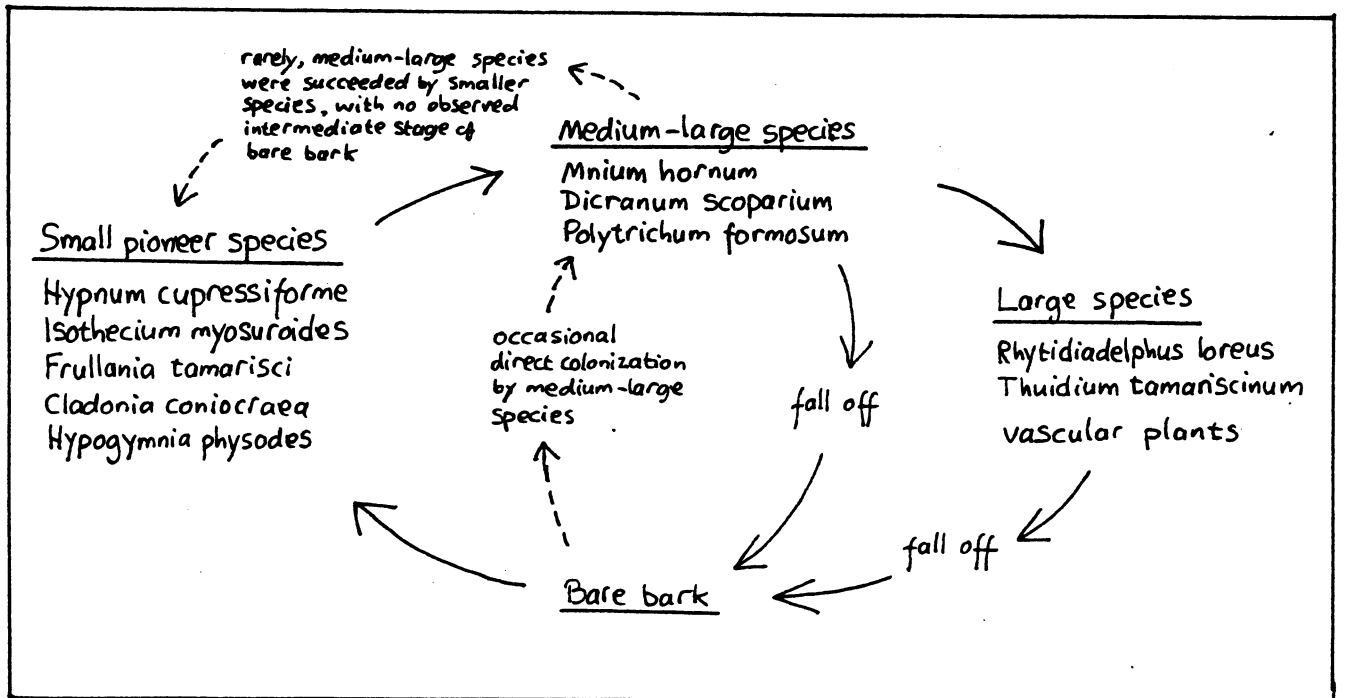 rarely, medium-large species
were succeeded by smaller
species, with no observed
intermediate stage of
bare bark
Medium-large species
Mnium hornum
Dicranum scoparium
Polytrichum formosum
Small pioneer species
Hypnum cupressiforme
Isothecium myosuroides
Frullania tamarisci
Cladonia coniocraea
Hypogymnia physodes
occasional
direct colonization
by medium-large
species
fall off
Large species
Rhytidiadelphus loreus
Thuidium tamariscinum
vascular plants
fall off
Bare bark